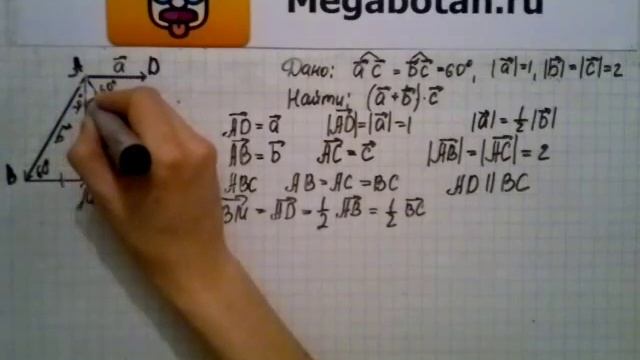 Megabotan.ru
Дано: a⃗ ^ c⃗ = b⃗ ^ c⃗ = 60°, |a⃗|=1, |b⃗|=|c⃗|=2
Найти: (a⃗+b⃗)·c⃗
AD⃗ = a⃗ |AD⃗|=|a⃗|=1 |a⃗|=½|b⃗|
AB⃗ = b⃗ AC⃗ = c⃗ |AB⃗|=|AC⃗|=2
ABC AB=AC=BC AD || BC
BM⃗ = AD⃗ = ½ AB⃗ = ½ BC⃗
A a⃗ D
60°
b⃗
B 60